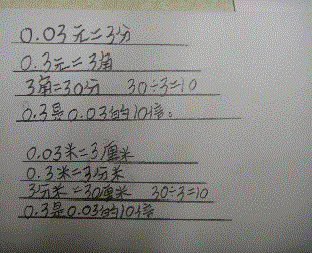 0.03元=3分
0.3元=3角
3角=30分 30÷3=10
0.3是0.03的10倍。
0.03米=3厘米
0.3米=3分米
3分米=30厘米 30÷3=10
0.3是0.03的10倍